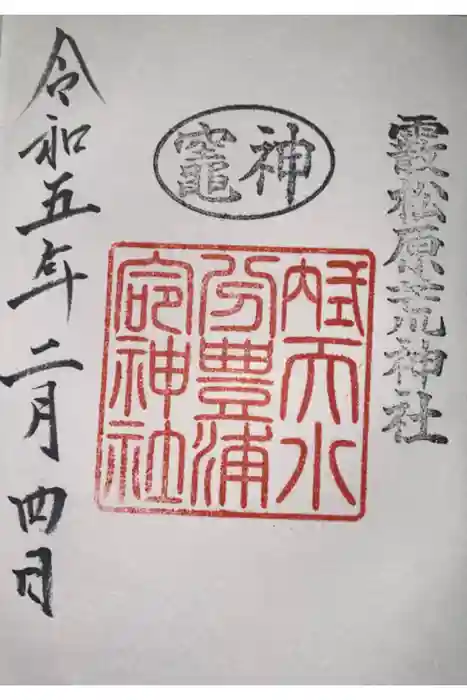 霰松原荒神社
竈神
天水
分豊浦
命神社
令和五年二月四日